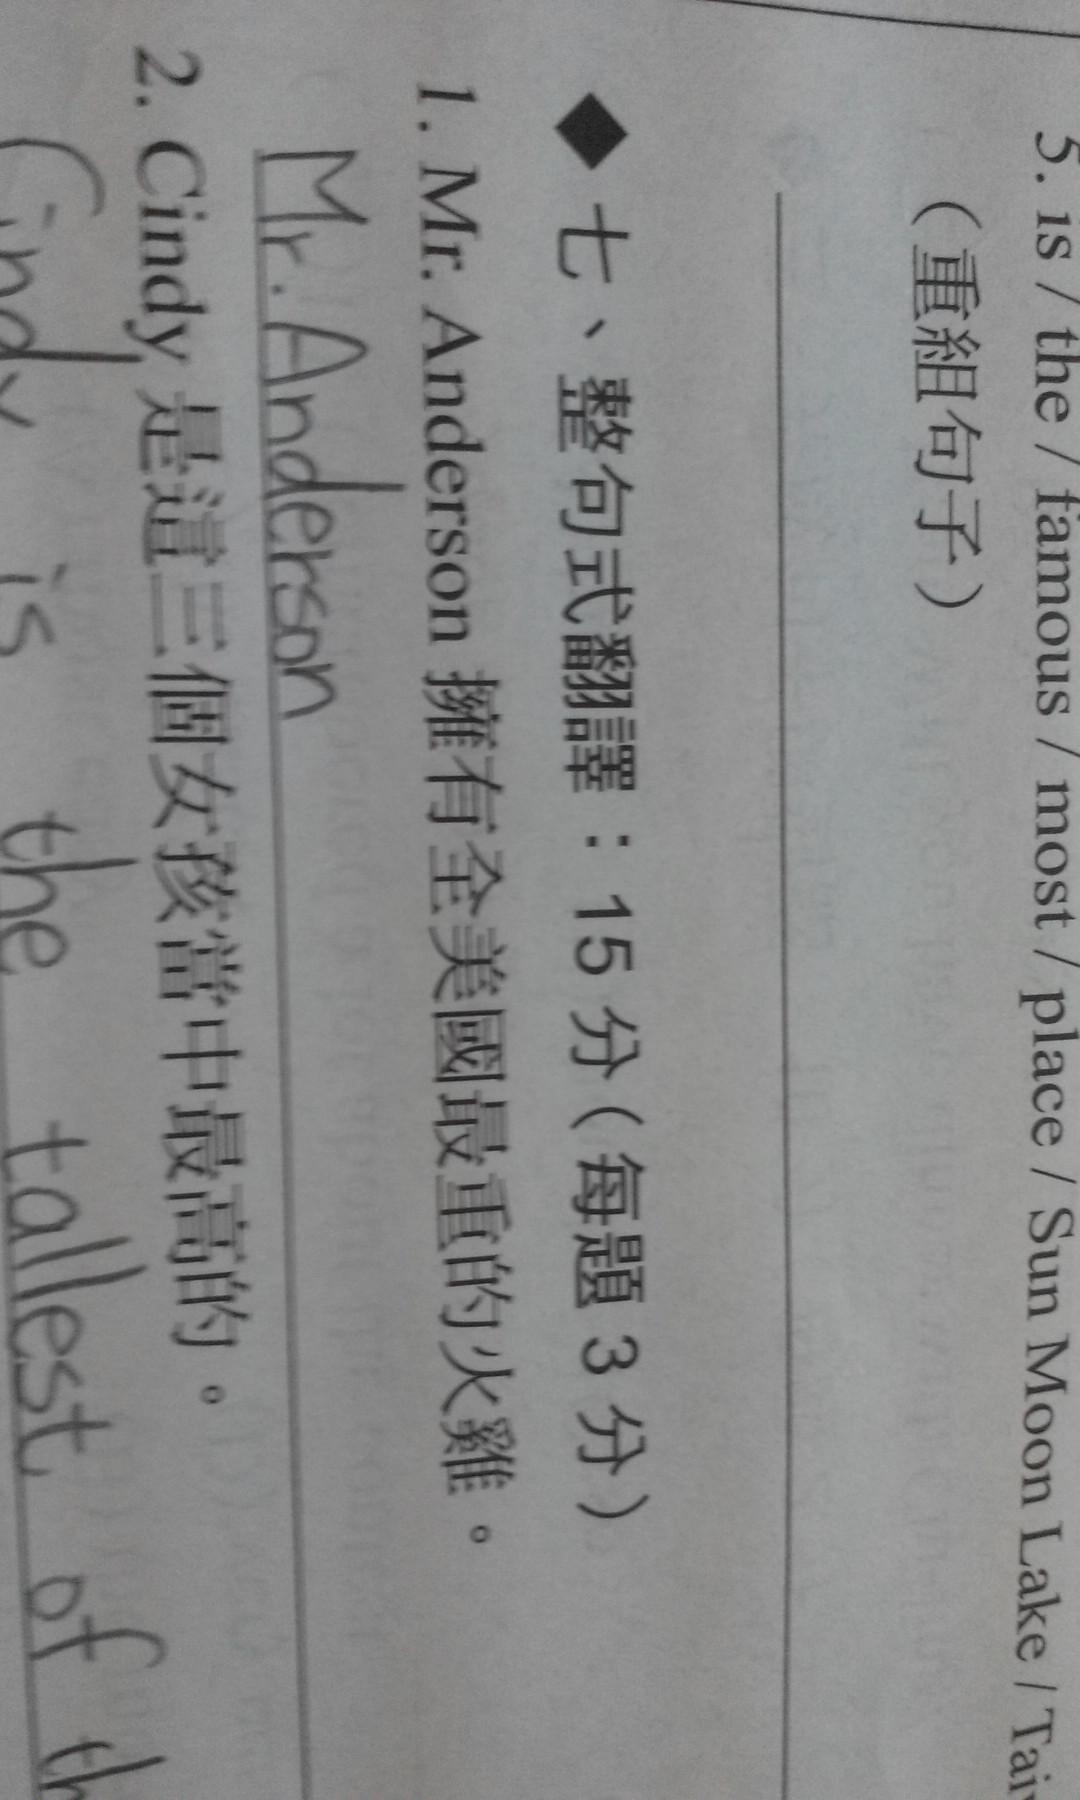 5. is / the / famous / most / place / Sun Moon Lake /
（重組句子）
◆ 七、整句式翻譯：15 分（每題 3 分）
1. Mr. Anderson 擁有全美國最重的火雞。
Mr. Anderson
2. Cindy 是這三個女孩當中最高的。
Cindy is the tallest of